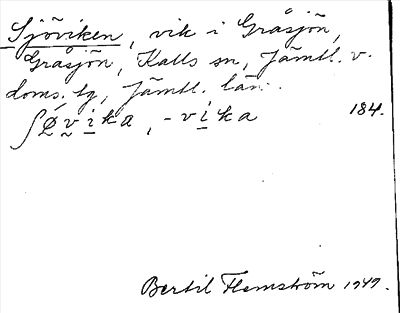 Sjöviken, vik i Gråsjön,
Gråsjön, Kalls sn, Jämtl. v.
doms. tg, Jämtl. län.
ʃǿvika, -vika 184.
Bertil Flemström 1949.